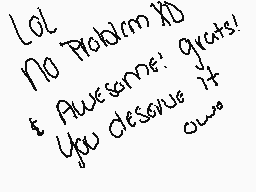 LOL
No Problem XD
& Awesome! grats!
You deserve it
owo